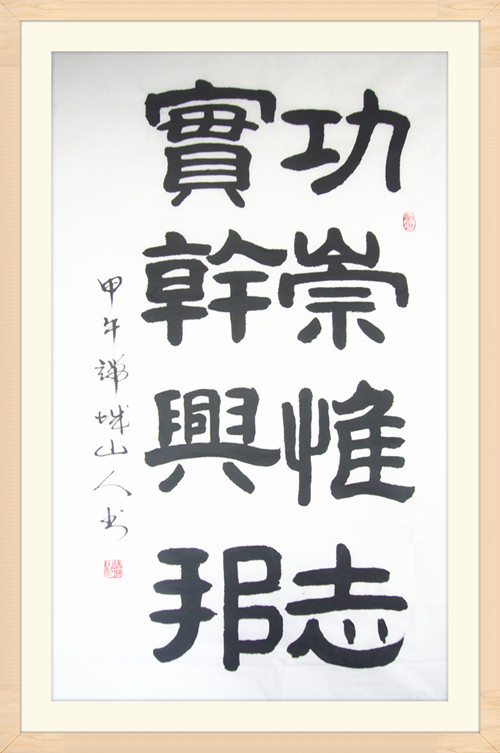 功崇惟志
實幹興邦
甲午譙城山人书